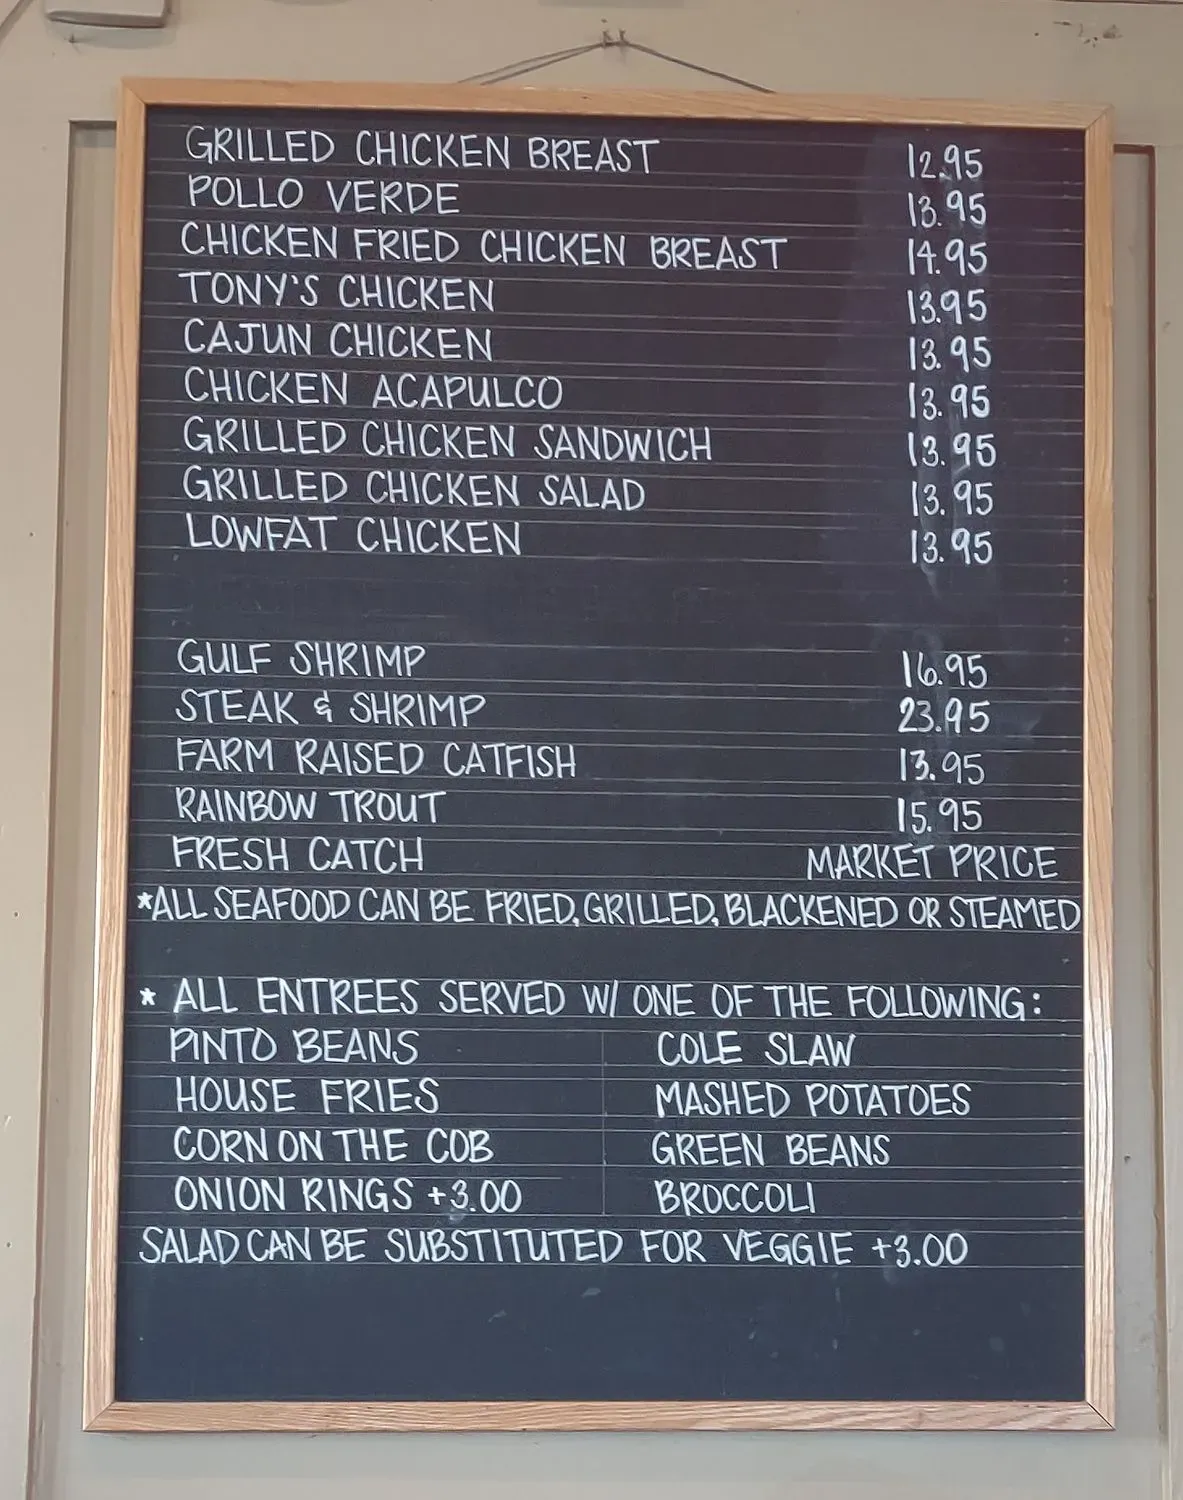 GRILLED CHICKEN BREAST 12.95
POLLO VERDE 13.95
CHICKEN FRIED CHICKEN BREAST 14.95
TONY'S CHICKEN 13.95
CAJUN CHICKEN 13.95
CHICKEN ACAPULCO 13.95
GRILLED CHICKEN SANDWICH 13.95
GRILLED CHICKEN SALAD 13.95
LOWFAT CHICKEN 13.95
GULF SHRIMP 16.95
STEAK & SHRIMP 23.95
FARM RAISED CATFISH 13.95
RAINBOW TROUT 15.95
FRESH CATCH MARKET PRICE
*ALL SEAFOOD CAN BE FRIED, GRILLED, BLACKENED OR STEAMED
* ALL ENTREES SERVED W/ ONE OF THE FOLLOWING:
PINTO BEANS COLE SLAW
HOUSE FRIES MASHED POTATOES
CORN ON THE COB GREEN BEANS
ONION RINGS +3.00 BROCCOLI
SALAD CAN BE SUBSTITUTED FOR VEGGIE +3.00